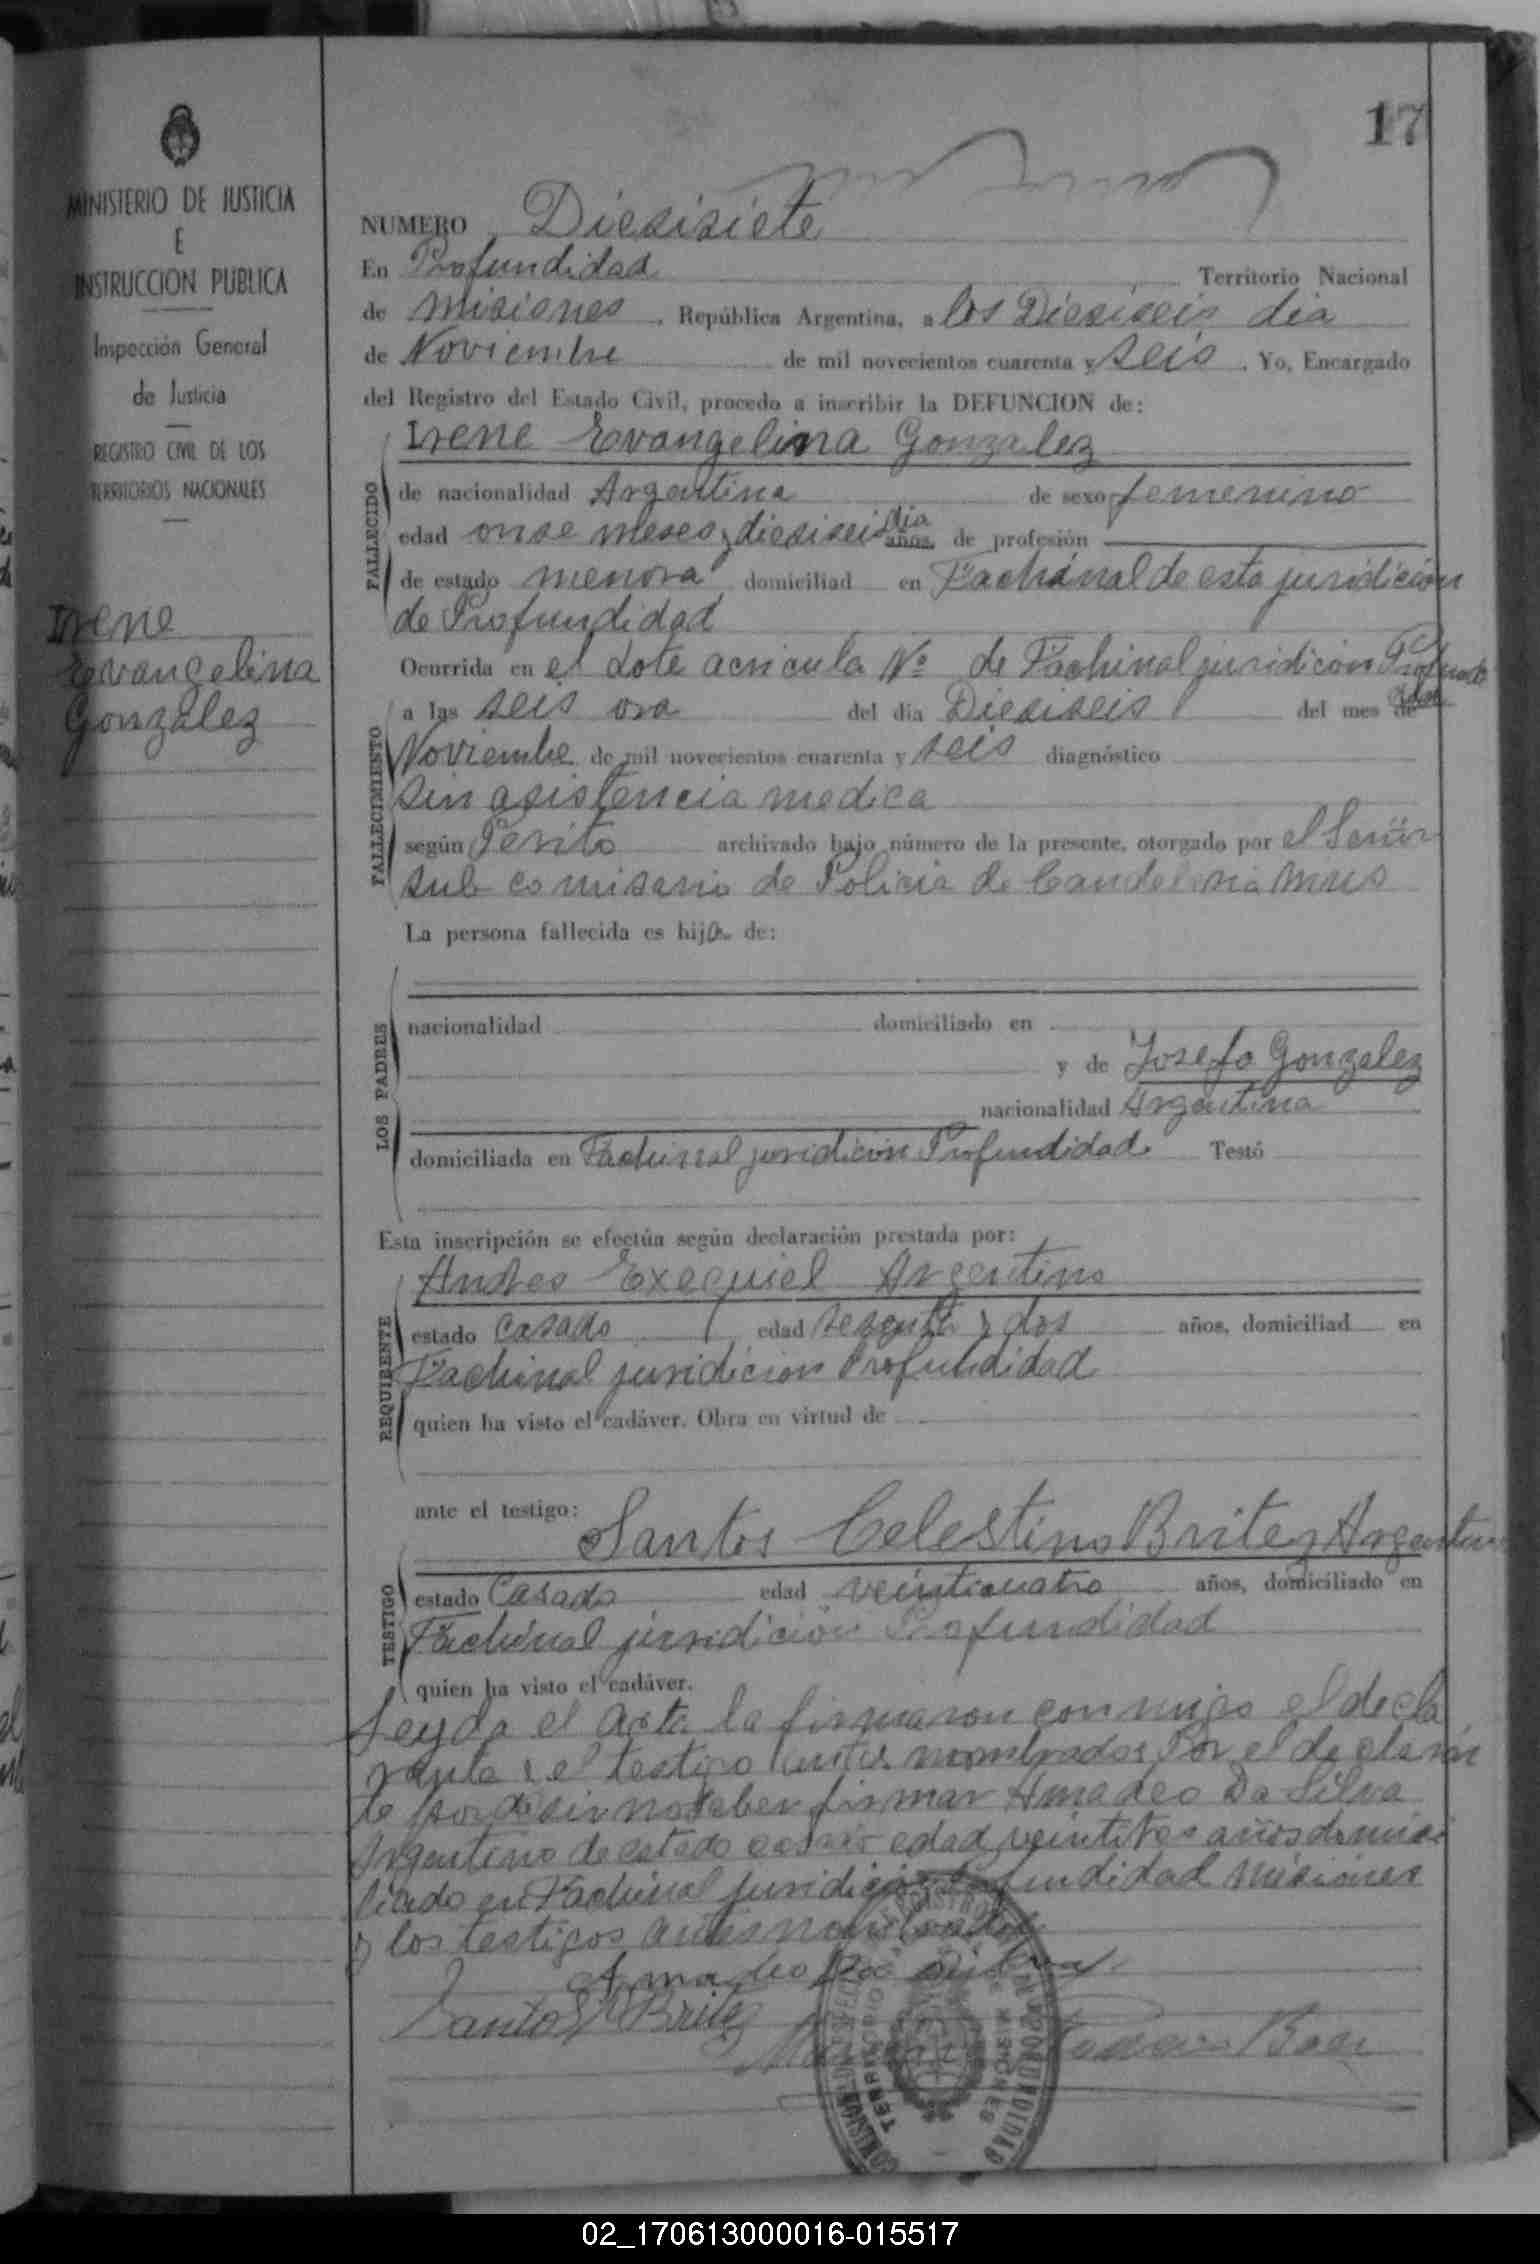 17
MINISTERIO DE JUSTICIA
E
INSTRUCCION PUBLICA
Inspección General
de Justicia
REGISTRO CIVIL DE LOS
TERRITORIOS NACIONALES
Irene
Evangelina
Gonzalez
NUMERO Diesisiete
En Profundidad Territorio Nacional
de misiones. República Argentina, a los Diesiseis dia
de Noviembre de mil novecientos cuarenta y seis. Yo, Encargado
del Registro del Estado Civil, procedo a inscribir la DEFUNCION de:
Irene Evangelina Gonzalez
FALLECIDO
de nacionalidad Argentina de sexo femenino
edad onse meses y diesiseis dia años, de profesión
de estado menora domiciliad en Fachinal de esta juridicion
de Profundidad
FALLECIMIENTO
Ocurrida en el Lote acricula Nº de Fachinal juridicion Profundidad
a las seis ora del dia Diesiseis del mes de
Noviembre de mil novecientos cuarenta y seis diagnóstico
sin asistencia medica
según Perito archivado bajo número de la presente, otorgado por el Señor
sub comisario de Policia de Candelaria Mnes
La persona fallecida es hija de:
LOS PADRES
nacionalidad domiciliado en
y de Josefa Gonzalez
nacionalidad Argentina
domiciliada en Fachinal juridicion Profundidad Testó
Esta inscripción se efectúa según declaración prestada por:
REQUIRENTE
Andres Exequiel Argentino
estado Casado edad sesenta y dos años, domiciliad en
Fachinal juridicion Profundidad
quien ha visto el cadáver. Obra en virtud de
ante el testigo:
TESTIGO
Santos Celestino Britez Argentino
estado Casado edad veinticuatro años, domiciliado en
Fachinal juridicion Profundidad
quien ha visto el cadáver.
Leyda el acta la firmaron conmigo el decla
rante y el testigo antes nombrados Por el declaran
te por desir no saber firmar Amadeo Da Silva
Argentino de estado edad veintitres años domisi
liado en Fachinal juridicion Profundidad Misiones
y los testigos antes nombrados
Amadeo Da Silva
Santos C Britez
TERRITORIO MISIONES
PROFUNDIDAD
02_170613000016-015517